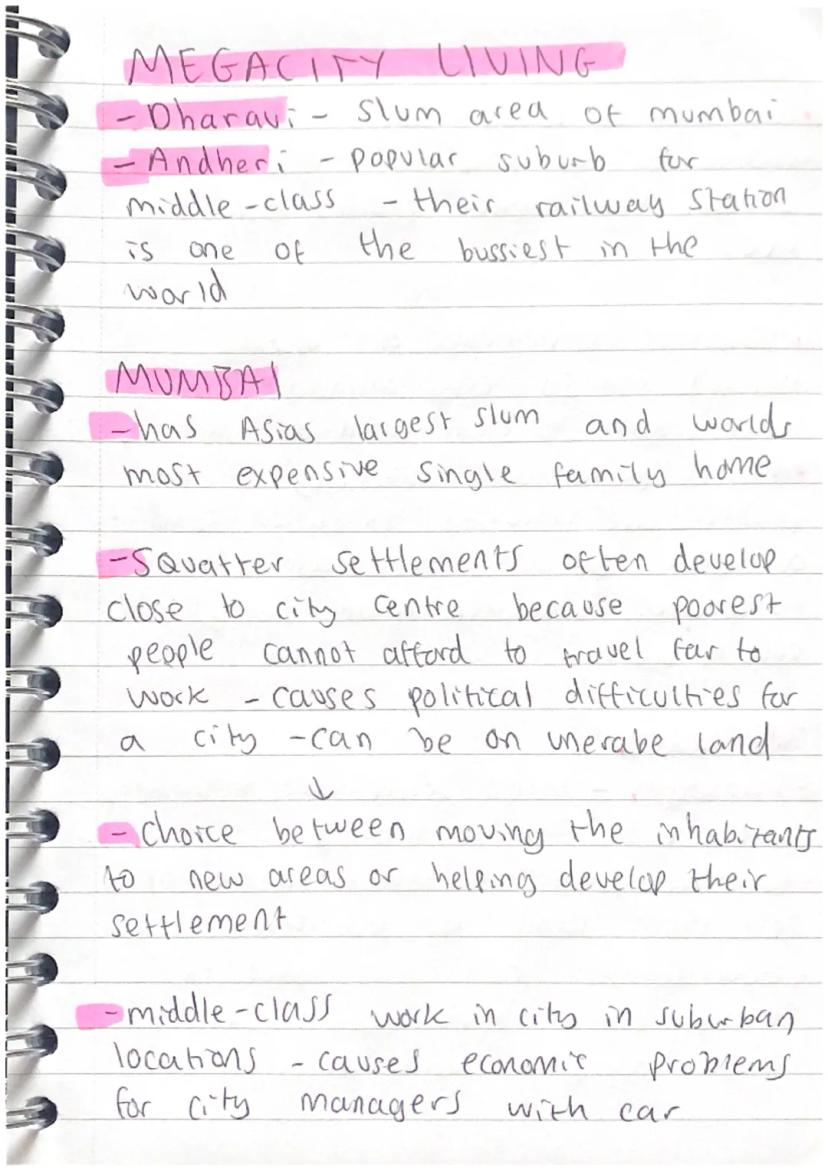 MEGACITY LIVING
- Dharavi - Slum area of mumbai
- Andheri - popular suburb for
middle-class - their railway station
is one of the bussiest in the
world
MUMBAI
- has Asias largest slum and worlds
most expensive single family home
- Squatter settlements often develop
close to city centre because poorest
people cannot afford to travel far to
work - causes political difficulties for
a city - can be on unerabe land
↓
- choice between moving the inhabitants
to new areas or helping develop their
settlement
- middle-class work in city in suburban
locations - causes economic problems
for city managers with car